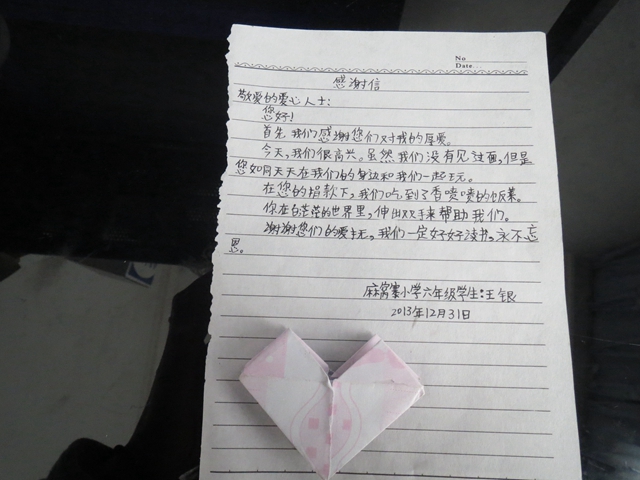 No
Date
感谢信
敬爱的爱心人士:
您好!
首先我们感谢您们对我的厚爱。
今天,我们很高兴。虽然我们没有见过面,但是
您如同天天在我们的身边和我们一起玩。
在您的捐款下,我们吃到了香喷喷的饭菜。
你在白茫茫的世界里,伸出双手来帮助我们。
谢谢您们的爱,我们一定好好读书。永不忘
恩。
麻窝寨小学六年级学生:王银
2013年12月31日